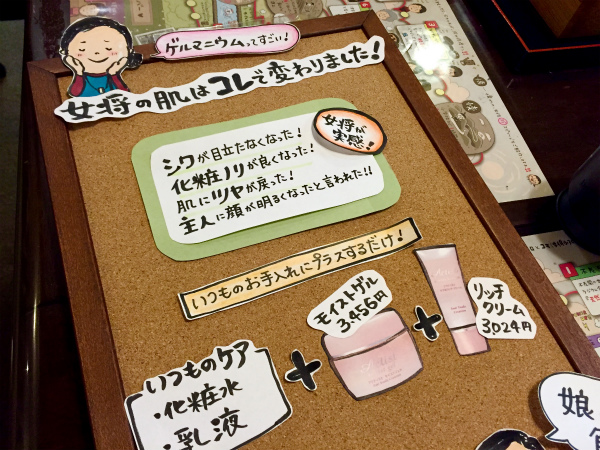 ゲルマニウムってすごい!
女将の肌はコレで変わりました!
女将が
実感!
シワが目立たなくなった!
化粧ノリが良くなった!
肌にツヤが戻った!
主人に顔が明るくなったと言われた!!
いつものお手入れにプラスするだけ!
モイストゲル
3456円
リッチ
クリーム
3024円
いつものケア
・化粧水
・乳液
+
+
娘